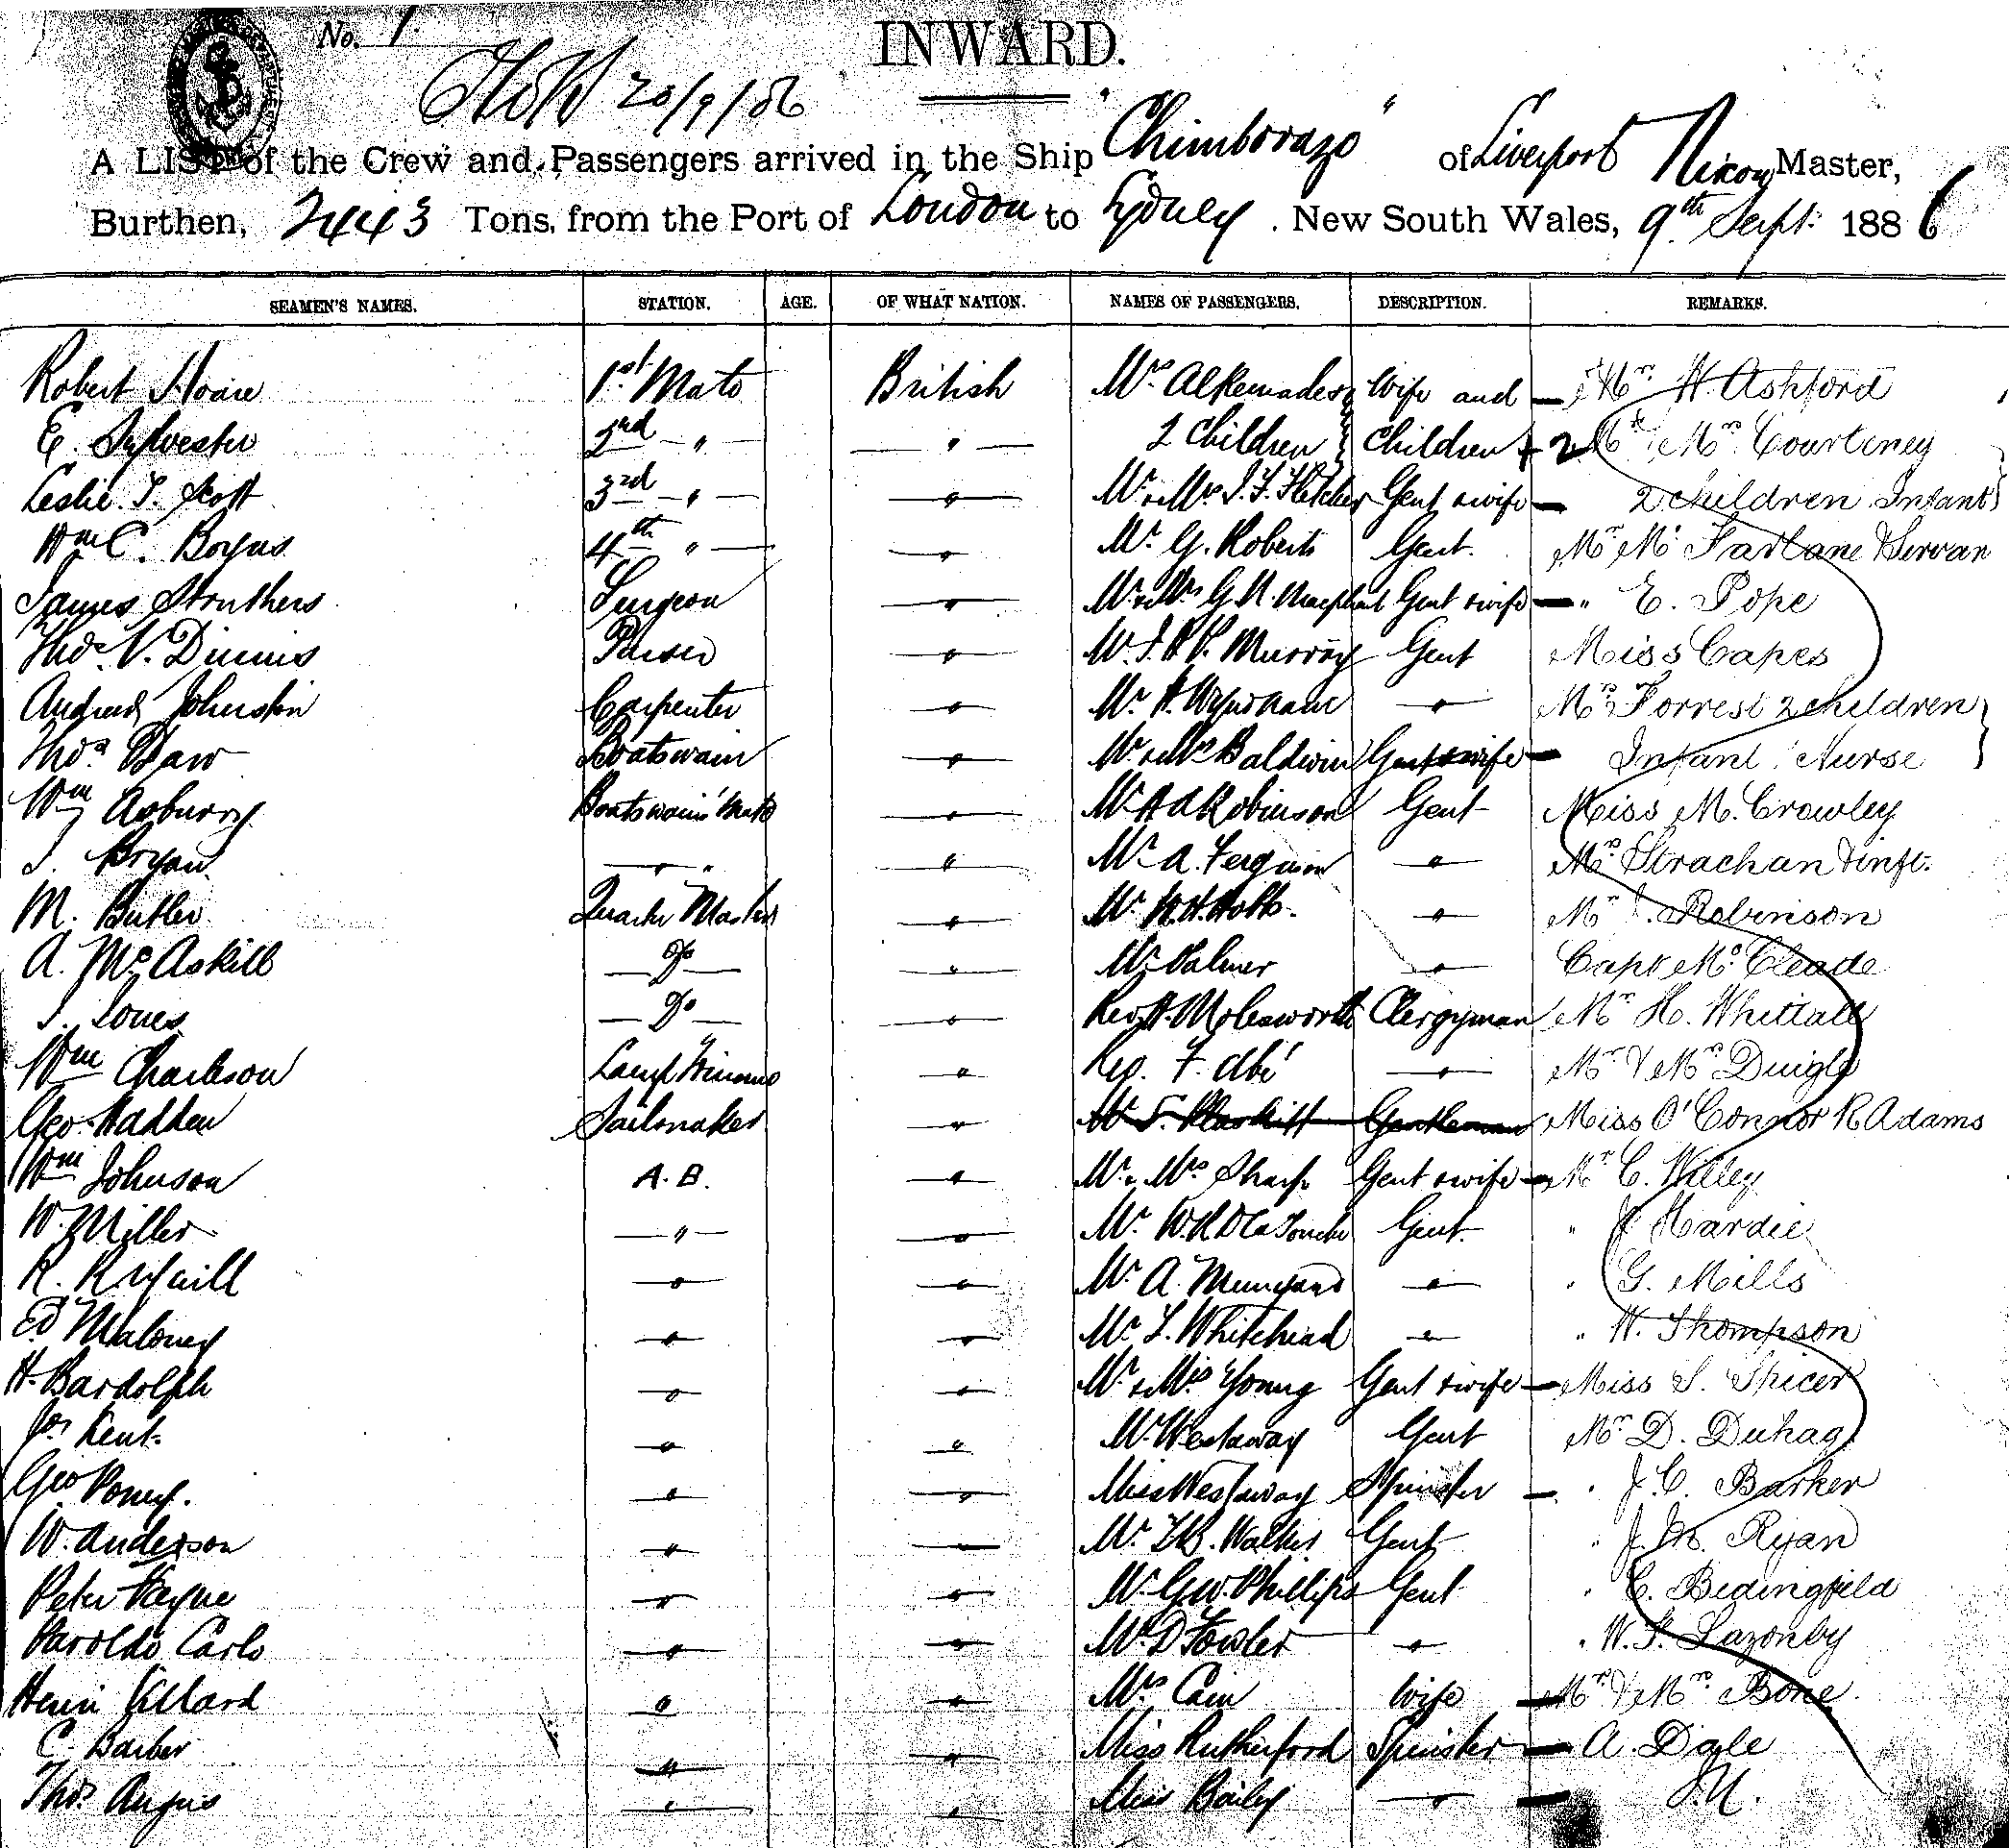 No. 1.
INWARD.
20/9/86
A LIST of the Crew and Passengers arrived in the Ship "Chimborazo" of Liverpool Nixon Master,
Burthen, 2443 Tons, from the Port of London to Sydney. New South Wales, 9th Sept: 1886
SEAMEN'S NAMES. STATION. AGE. OF WHAT NATION. NAMES OF PASSENGERS. DESCRIPTION. REMARKS.
Robert Hoare 1st Mate British Mrs Alkemades Wife and — Mr. H. Ashford
E. Sylvester 2nd — " — — " — 2 Children Children + 2 Mr & Mrs Courteney
Leslie T. Scott 3rd — " — — " — Mr & Mrs J. F. Fletcher Gent & wife — 2 children Infant
Wm C. Boyus 4th " — — " — Mr. G. Roberts Gent. Mr Mc Farlane & Servan
James Struthers Surgeon — " — Mr & Mrs G. N. Gent & wife — " E. Pope
Thos. V. Dinnis Purser — " — Mr. J. R. P. Murray Gent Miss Capes
Andrew Johnston Carpenter — " — Mr. H. Wyndham — " — Mrs Forrest 2 children
Thos Daw Boatswain — " — Mr & Mrs Baldwin Gent & wife — Infant Nurse
Wm Asburry Boatswains Mate — " — Mr A A Robinson Gent Miss M. Crowley
J. Bryan — " — " — " — Mr A. Ferguson — " — Mrs Strachan & inft.
M. Butler Quarter Master — " — Mr. H. H. Hobbs. — " — Mr J. Robinson
A. McAskill — Do — — " — Mr Palmer — " — Capt Mc Cleade
J. Jones — Do — — " — Rev. H. Molesworth Clergyman Mr H. Whittall
Wm Charleson Lamp Trimmer — " — Rev. F. Abé — " — Mr & Mrs Duigle
Geo. Hadden Sailmaker — " — Mr Gentleman Miss O'Connor R Adams
Wm Johnson A.B. — " — Mr & Mrs Sharp Gent & wife — Mr C. Willey
W. Miller — " — — " — Mr. W. R. D La Touche Gent. " J Hardie
R. — " — — " — Mr A. — " — " G. Mills
Ed Maloney — " — — " — Mr. L. Whitehead — " — " W. Thompson
H. Bardolph — " — — " — Mr & Mrs Young Gent & wife — Miss S. Spicer
Jos Kent. — " — — " — Mr Westaway Gent Mr D. Duhag
Geo Poney. — " — — " — Miss Westaway Spinster — " J. C. Barker
W. Anderson — " — — " — Mr. T. B. Walker Gent " J. M. Ryan
Peter Kayne — " — — " — Mr. G. W. Phillips Gent " C. Bedingfeld
Paroldo Carlo — " — — " — Mr D Fowler — " — " W. S. Lazonby
Henri Villard — " — — " — Mrs Cain Wife — Mr & Mrs Bone.
C. Barber — " — — " — Miss Rutherford Spinster — A. Dale
Thos. Angus — " — — " — Miss Bailey — " — — J. N.